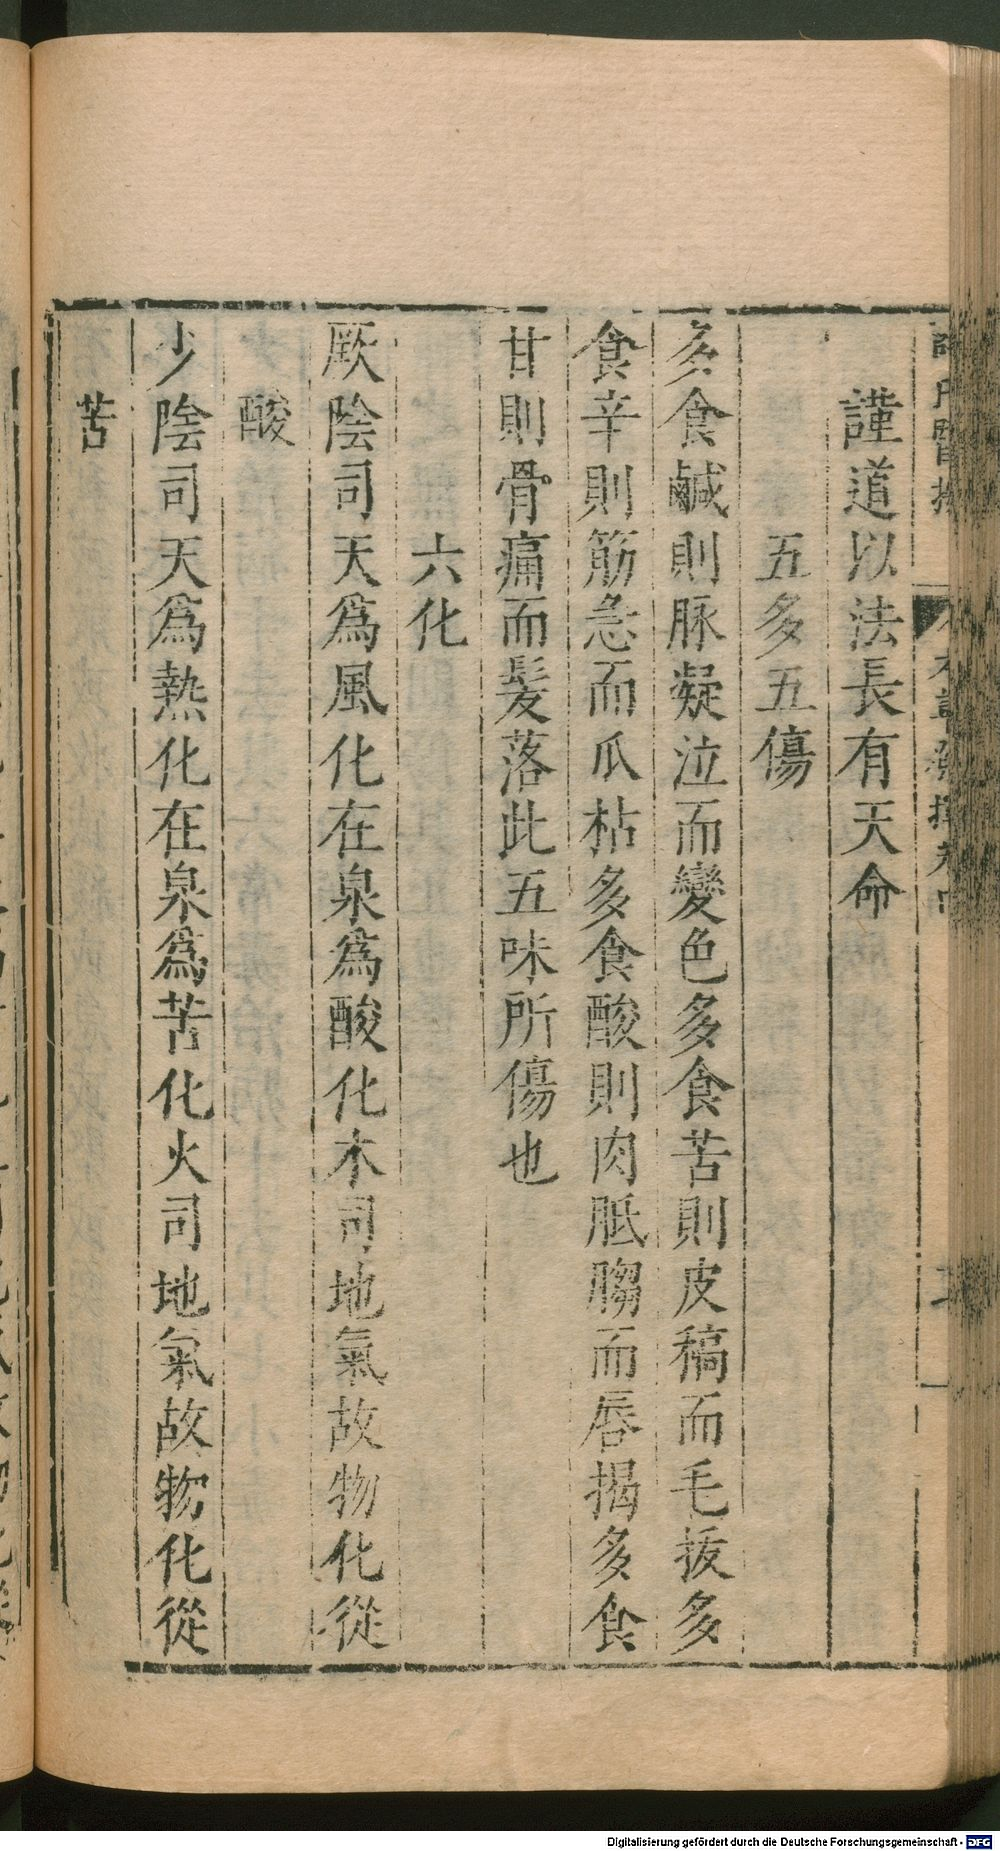 謹道以法長有天命
五多五傷
多食鹹則脉凝泣而變色多食苦則皮稿而毛拔多
食辛則筋急而爪枯多食酸則肉胝䐢而唇揭多食
甘則骨痛而髮落此五味所傷也
六化
厥陰司天為風化在泉為酸化木司地氣故物化從
酸
少陰司天為熱化在泉為苦化火司地氣故物化從
苦
Digitalisierung gefördert durch die Deutsche Forschungsgemeinschaft - DFG